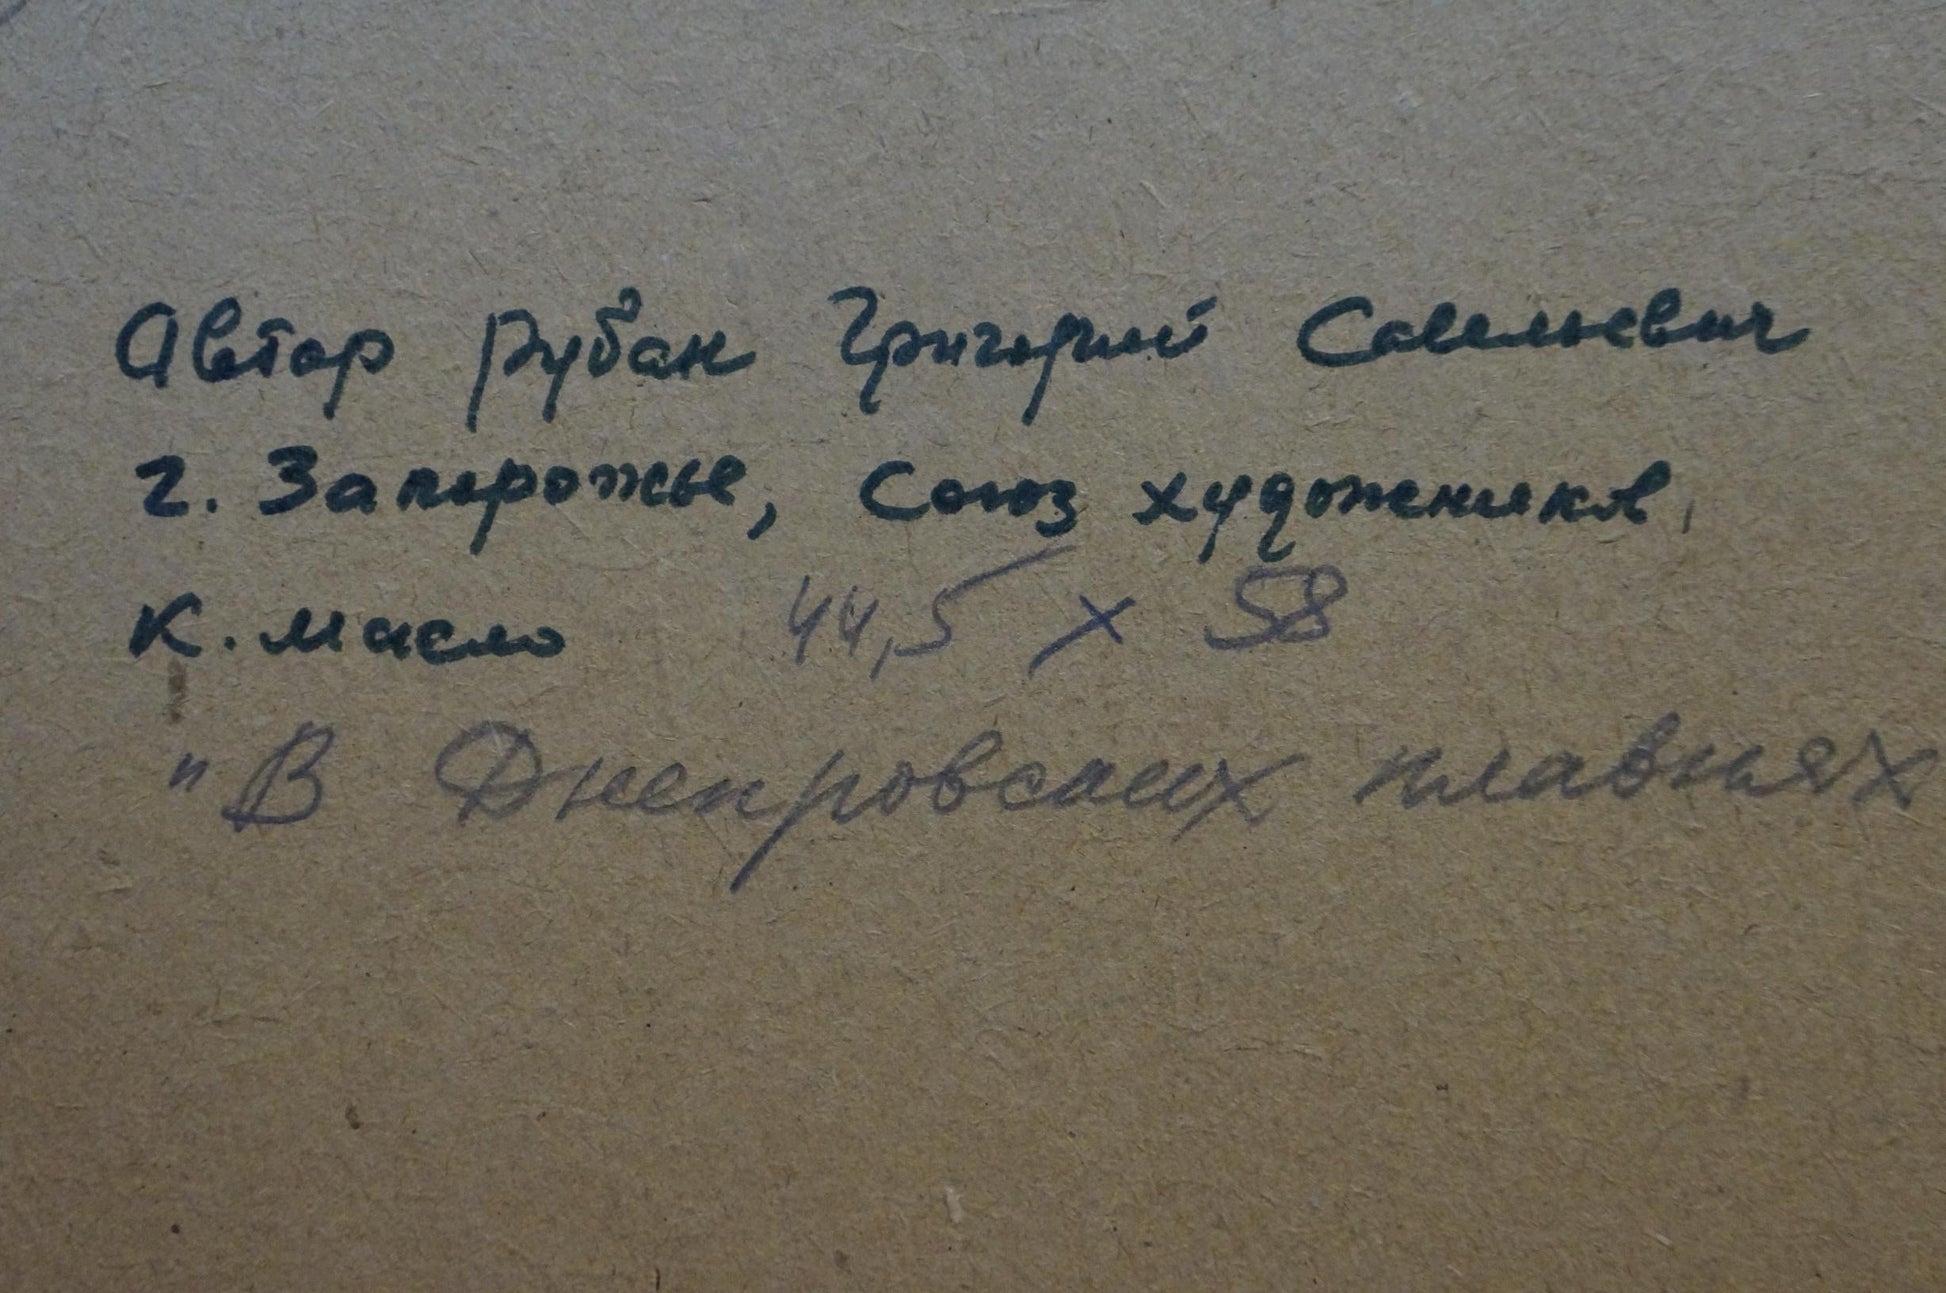 Автор Рубан Григорий Савельевич
г. Запорожье, Союз художников,
К. масло 44,5 x 58
"В Днепровских плавнях